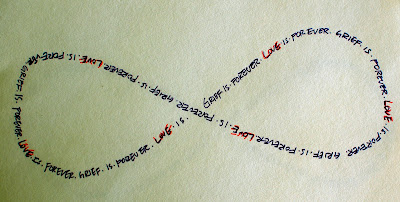 GRIEF IS. FOREVER. LOVE IS. FOREVER. GRIEF. IS. FOREVER. LOVE. IS. FOREVER. GRIEF. IS. FOREVER. LOVE. IS. FOREVER. GRIEF. IS. FOREVER. LOVE. IS. FOREVER. GRIEF. IS. FOREVER. LOVE. IS. FOREVER. GRIEF. IS. FOREVER. LOVE. IS.